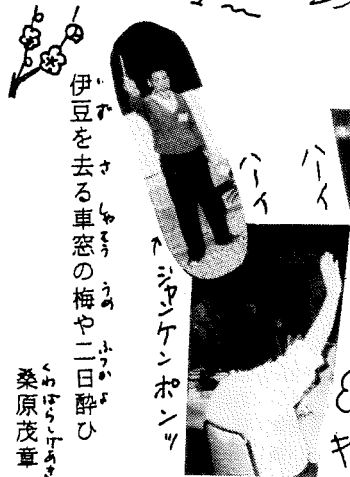 ハーイ
ハーイ
ジャンケンポンッ
伊豆を去る車窓の梅や二日酔ひ
いず さ しゃそう うめ ふつかよ
桑原茂章
くわはらしげあき